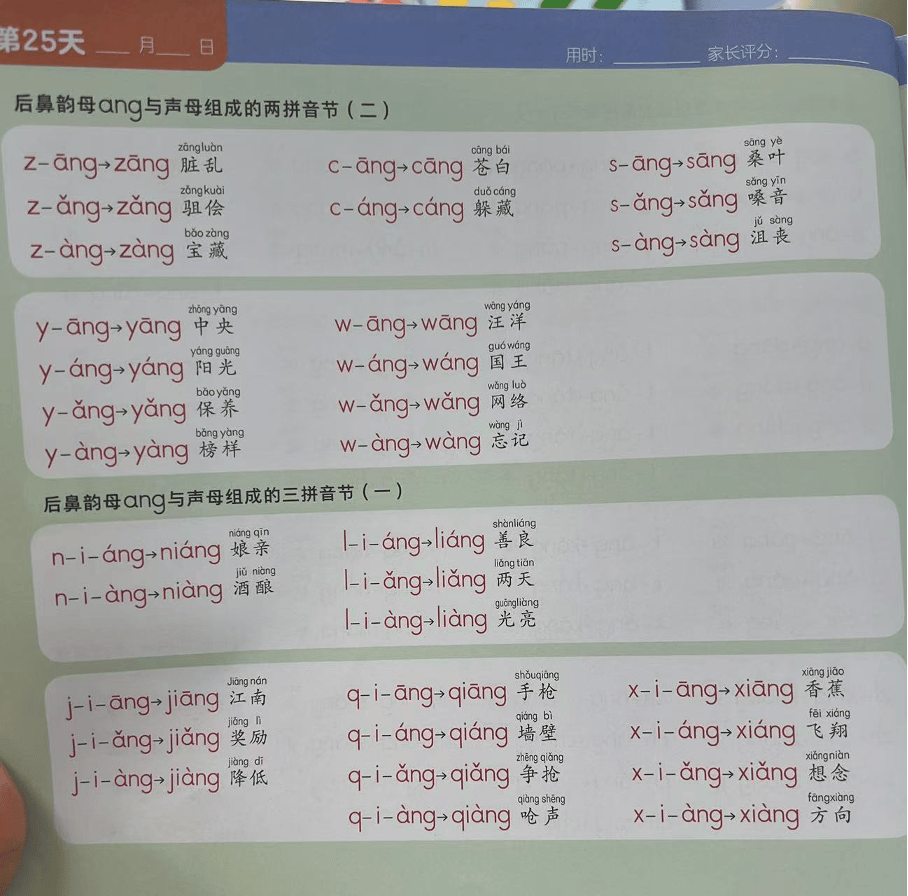 第25天 ___ 月 ___ 日
用时：________ 家长评分：________
后鼻韵母ang与声母组成的两拼音节（二）
zāngluàn cāng bái sāng yè
z-āng→zāng 脏乱 c-āng→cāng 苍白 s-āng→sāng 桑叶
zǎngkuài duǒ cáng sǎng yīn
z-ǎng→zǎng 驵侩 c-áng→cáng 躲藏 s-ǎng→sǎng 嗓音
bǎo zàng jǔ sàng
z-àng→zàng 宝藏 s-àng→sàng 沮丧
zhōng yāng wāng yáng
y-āng→yāng 中央 w-āng→wāng 汪洋
yáng guāng guó wáng
y-áng→yáng 阳光 w-áng→wáng 国王
bǎo yǎng wǎng luò
y-ǎng→yǎng 保养 w-ǎng→wǎng 网络
bǎng yàng wàng jì
y-àng→yàng 榜样 w-àng→wàng 忘记
后鼻韵母ang与声母组成的三拼音节（一）
niáng qīn shànliáng
n-i-áng→niáng 娘亲 l-i-áng→liáng 善良
jiǔ niàng liǎng tiān
n-i-àng→niàng 酒酿 l-i-ǎng→liǎng 两天
guāngliàng
l-i-àng→liàng 光亮
Jiāng nán shǒuqiāng xiāng jiāo
j-i-āng→jiāng 江南 q-i-āng→qiāng 手枪 x-i-āng→xiāng 香蕉
jiǎng lì qiáng bì fēi xiáng
j-i-ǎng→jiǎng 奖励 q-i-áng→qiáng 墙壁 x-i-áng→xiáng 飞翔
jiàng dī zhēng qiǎng xiǎng niàn
j-i-àng→jiàng 降低 q-i-ǎng→qiǎng 争抢 x-i-ǎng→xiǎng 想念
qiàng shēng fāngxiàng
q-i-àng→qiàng 呛声 x-i-àng→xiàng 方向